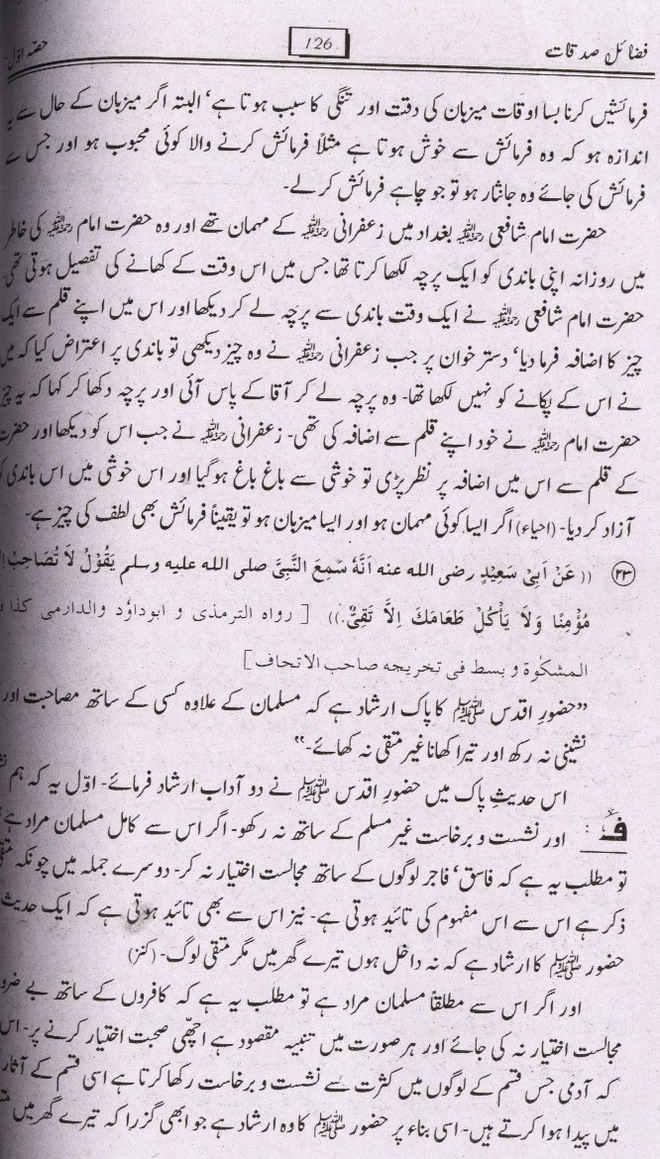 فضائل صدقات 126 حصّہ اوّل
فرمائشیں کرنا بسا اوقات میزبان کی دقت اور تنگی کا سبب ہوتا ہے‘ البتہ اگر میزبان کے حال سے یہ
اندازہ ہو کہ وہ فرمائش سے خوش ہوتا ہے مثلاً فرمائش کرنے والا کوئی محبوب ہو اور جس سے
فرمائش کی جائے وہ جانثار ہو تو جو چاہے فرمائش کر لے۔
حضرت امام شافعی رحمۃ اللہ علیہ بغداد میں زعفرانی رحمۃ اللہ علیہ کے مہمان تھے اور وہ حضرت امام رحمۃ اللہ علیہ کی خاطر
میں روزانہ اپنی باندی کو ایک پرچہ لکھا کرتا تھا جس میں اس وقت کے کھانے کی تفصیل ہوتی تھی
حضرت امام شافعی رحمۃ اللہ علیہ نے ایک وقت باندی سے پرچہ لے کر دیکھا اور اس میں اپنے قلم سے ایک
چیز کا اضافہ فرما دیا‘ دستر خوان پر جب زعفرانی رحمۃ اللہ علیہ نے وہ چیز دیکھی تو باندی پر اعتراض کیا کہ میں
نے اس کے پکانے کو نہیں لکھا تھا۔ وہ پرچہ لے کر آقا کے پاس آئی اور پرچہ دکھا کر کہا کہ یہ چیز
حضرت امام رحمۃ اللہ علیہ نے خود اپنے قلم سے اضافہ کی تھی۔ زعفرانی رحمۃ اللہ علیہ نے جب اس کو دیکھا اور حضرت
کے قلم سے اس میں اضافہ پر نظر پڑی تو خوشی سے باغ باغ ہو گیا اور اس خوشی میں اس باندی کو
آزاد کر دیا۔ (احیاء) اگر ایسا کوئی مہمان ہو اور ایسا میزبان ہو تو یقیناً فرمائش بھی لطف کی چیز ہے۔
۲۳ (( عَنْ اَبِیْ سَعِیْدٍ رضی اللہ عنہ اَنَّہٗ سَمِعَ النَّبِیَّ صلی اللہ علیہ وسلم یَقُوْلُ لَا تُصَاحِبْ
مُؤْمِنًا وَلَا یَأْکُلْ طَعَامَکَ اِلَّا تَقِیٌّ.)) [ رواہ الترمذی و ابوداؤد والدارمی کذا
المشکٰوۃ و بسط فی تخریجہ صاحب الاتحاف]
”حضورِ اقدس ﷺ کا پاک ارشاد ہے کہ مسلمان کے علاوہ کسی کے ساتھ مصاحبت اور
نشینی نہ رکھ اور تیرا کھانا غیر متقی نہ کھائے۔“
اس حدیثِ پاک میں حضورِ اقدس ﷺ نے دو آداب ارشاد فرمائے۔ اوّل یہ کہ ہم
ف : اور نشست و برخاست غیر مسلم کے ساتھ نہ رکھو۔ اگر اس سے کامل مسلمان مراد ہے
تو مطلب یہ ہے کہ فاسق‘ فاجر لوگوں کے ساتھ مجالست اختیار نہ کر۔ دوسرے جملہ میں چونکہ
ذکر ہے اس سے اس مفہوم کی تائید ہوتی ہے۔ نیز اس سے بھی تائید ہوتی ہے کہ ایک حدیث
حضور ﷺ کا ارشاد ہے کہ نہ داخل ہوں تیرے گھر میں مگر متقی لوگ۔ (کنز)
اور اگر اس سے مطلقاً مسلمان مراد ہے تو مطلب یہ ہے کہ کافروں کے ساتھ بے
مجالست اختیار نہ کی جائے اور ہر صورت میں تنبیہ مقصود ہے اچھی صحبت اختیار کرنے پر۔ اس
کہ آدمی جس قسم کے لوگوں میں کثرت سے نشست و برخاست رکھا کرتا ہے اسی قسم کے آثار
میں پیدا ہوا کرتے ہیں۔ اسی بناء پر حضور ﷺ کا وہ ارشاد ہے جو ابھی گزرا کہ تیرے گھر میں